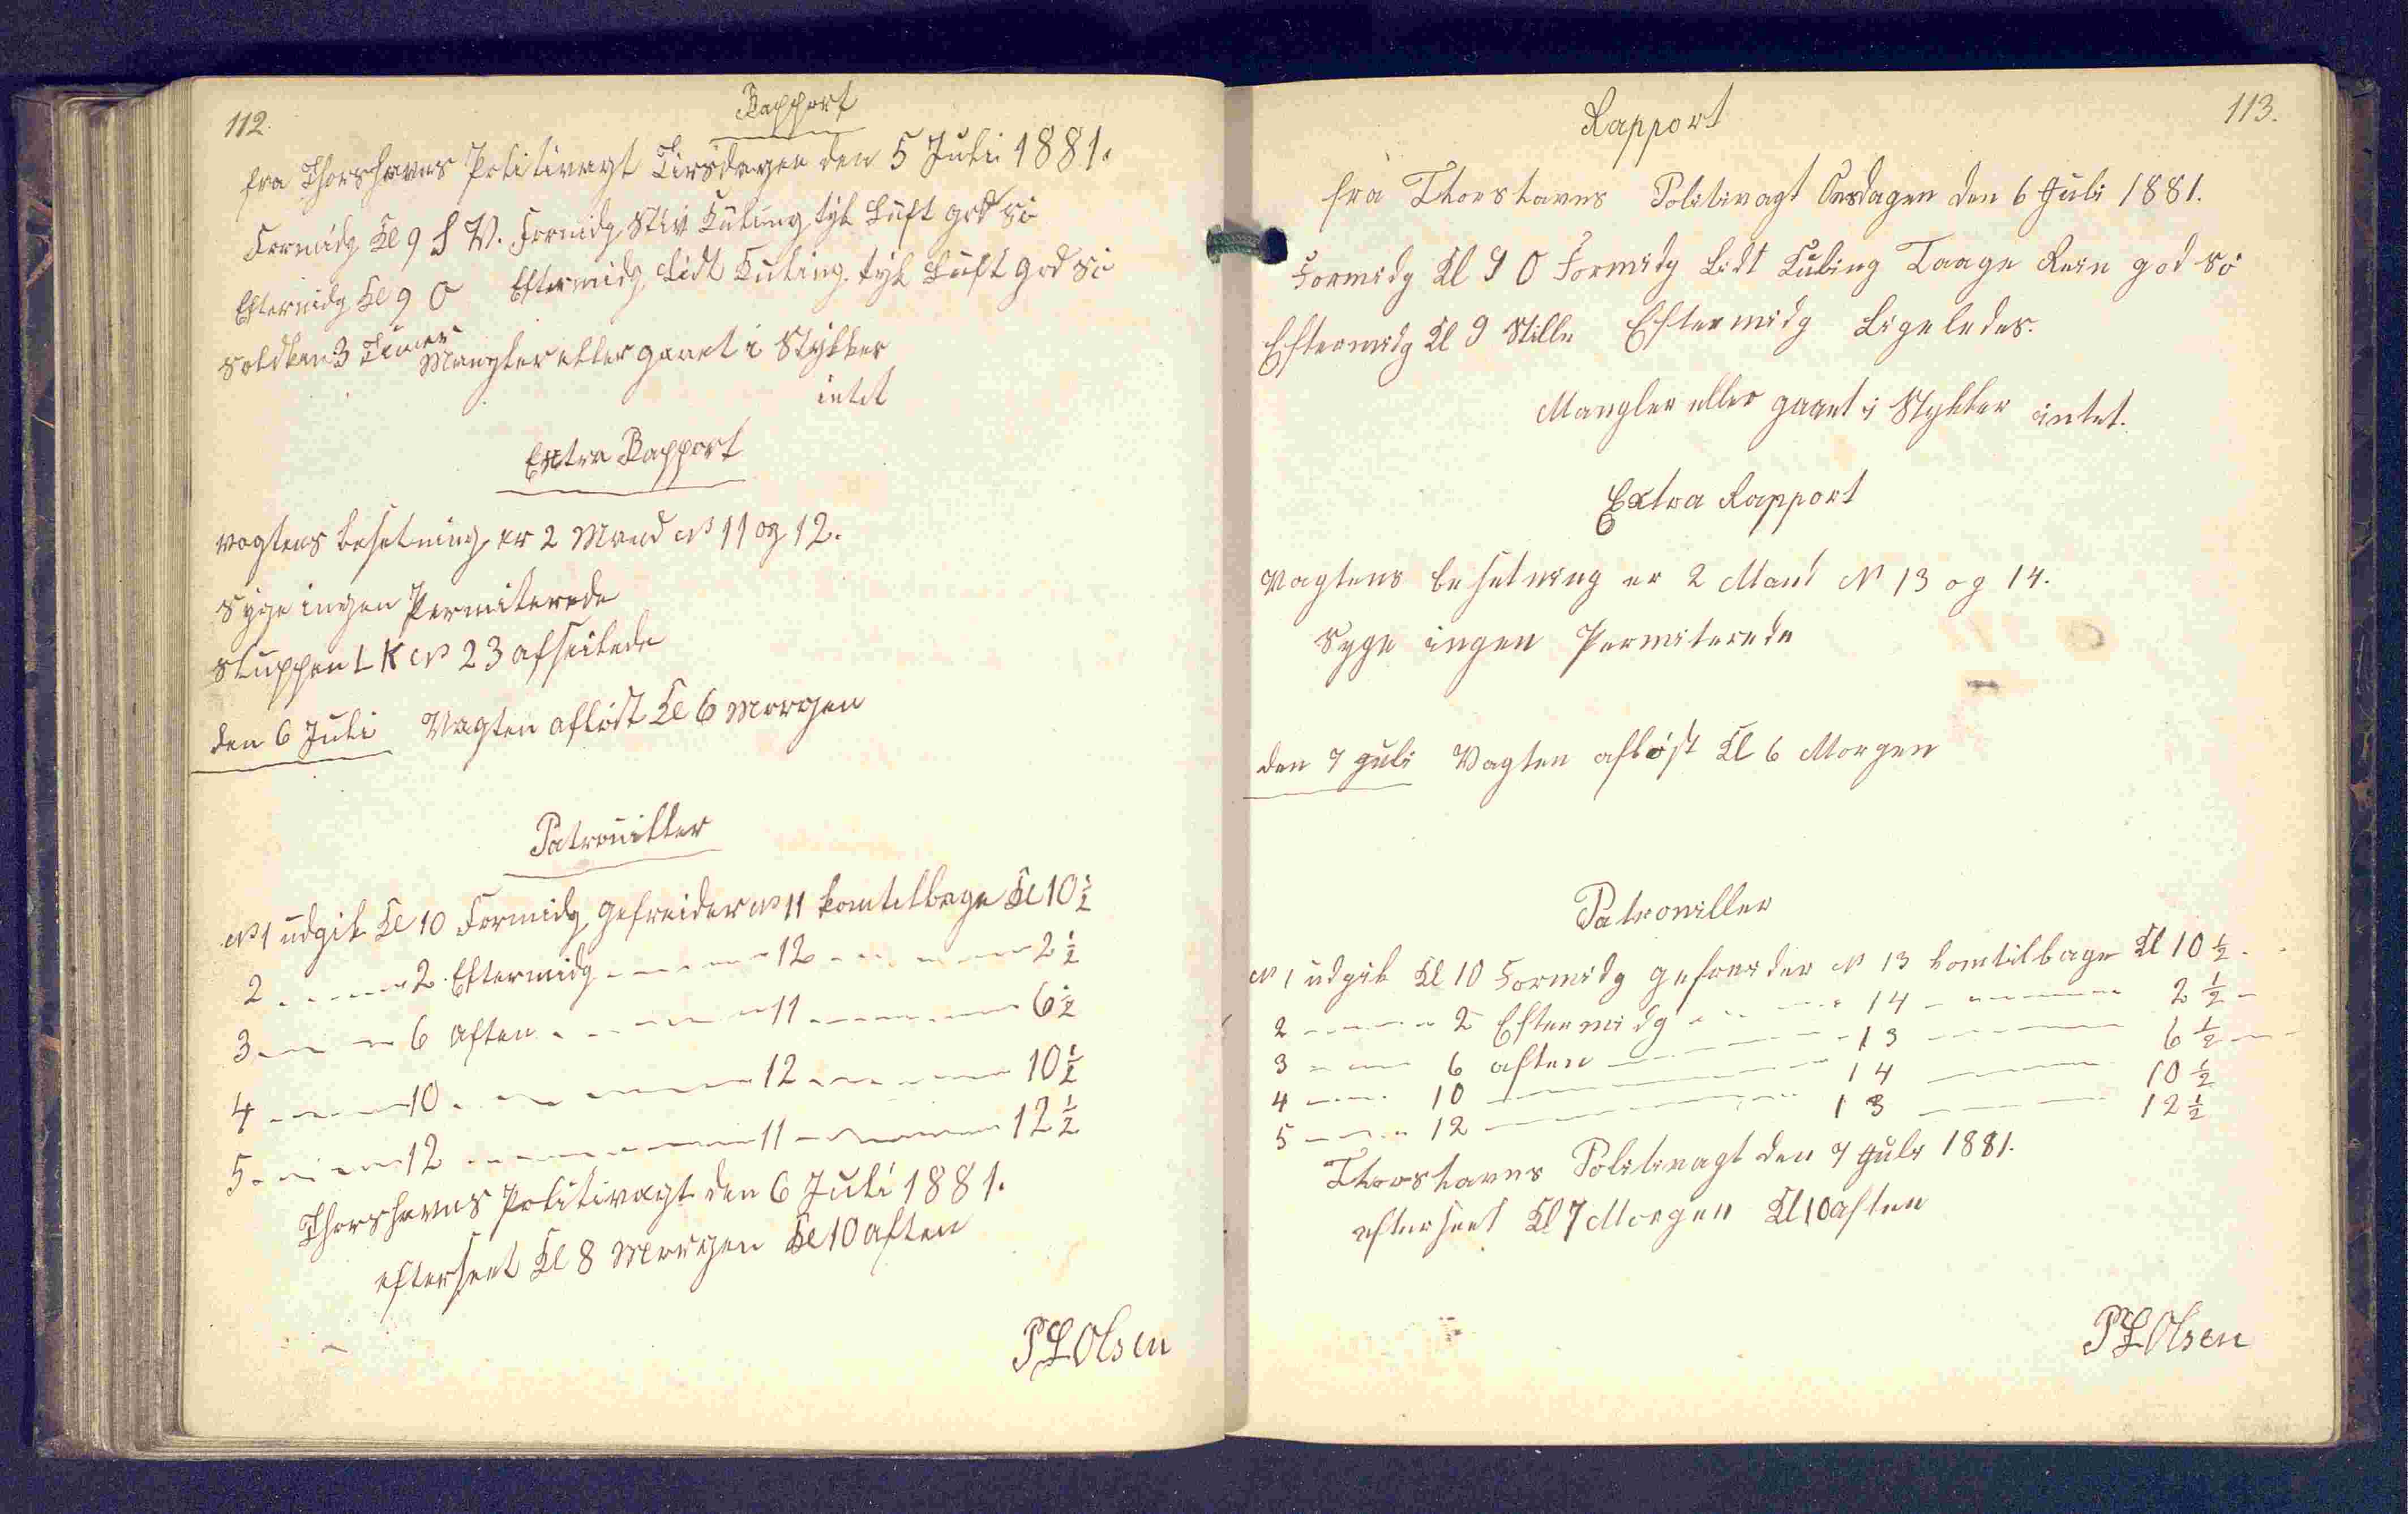 112.
Rapport
fra Thorshavns Politivagt Tirsdagen den 5 Juli 1881.
Formidg Kl 9 S V. Formidg Stiv Kuling tyk Luft god Sö
Eftermidg Kl 9 O Eftermidg Lidt Kuling tyk Luft god Sö
Solsken 3 Timer
Mangler eller gaaet i Stykker
intet
Extra Rapport
Vagtens besetning er 2 Mand No 11 og 12.
Syge ingen Permiterede
Sluppen L K No 23 afseilede
den 6 Juli Vagten aflöst Kl 6 Morgen
Patrouiller
No 1 udgik Kl 10 Formidg gefreider No 11 kom tilbage Kl 10 1/2
2 - - - - 2 Eftermidg - - - - 12 - - - - 2 1/2
3 - - - 6 aften - - - - 11 - - - - 6 1/2
4 - - - 10 - - - - 12 - - - - 10 1/2
5 - - - 12 - - - - 11 - - - - 12 1/2
Thorshavns Politivagt den 6 Juli 1881.
efterseet Kl 8 Morgen Kl 10 aften
P L Olsen
113.
Rapport
fra Thorshavns Politivagt Onsdagen den 6 Juli 1881.
Formidg Kl 9 O Formidg Lidt Kuling Taage Rein god Sö
Eftermidg Kl 9 Stille Eftermidg Ligeledes.
Mangler eller gaaet i Stykker intet.
Extra Rapport
Vagtens besetning er 2 Mand No 13 og 14.
Syge ingen Permiterede
den 7 Juli Vagten afløst Kl 6 Morgen
Patrouiller
No 1 udgik Kl 10 Formidg gefreider No 13 kom tilbage Kl 10 1/2.
2 - - - - 2 Eftermidg - - - - 14 - - - - 2 1/2 -
3 - - - 6 aften - - - - 13 - - - - 6 1/2 -
4 - - - 10 - - - - 14 - - - - 10 1/2
5 - - - 12 - - - - 13 - - - - 12 1/2
Thorshavns Politivagt den 7 Juli 1881.
efterseet Kl 7 Morgen Kl 10 aften
P L Olsen